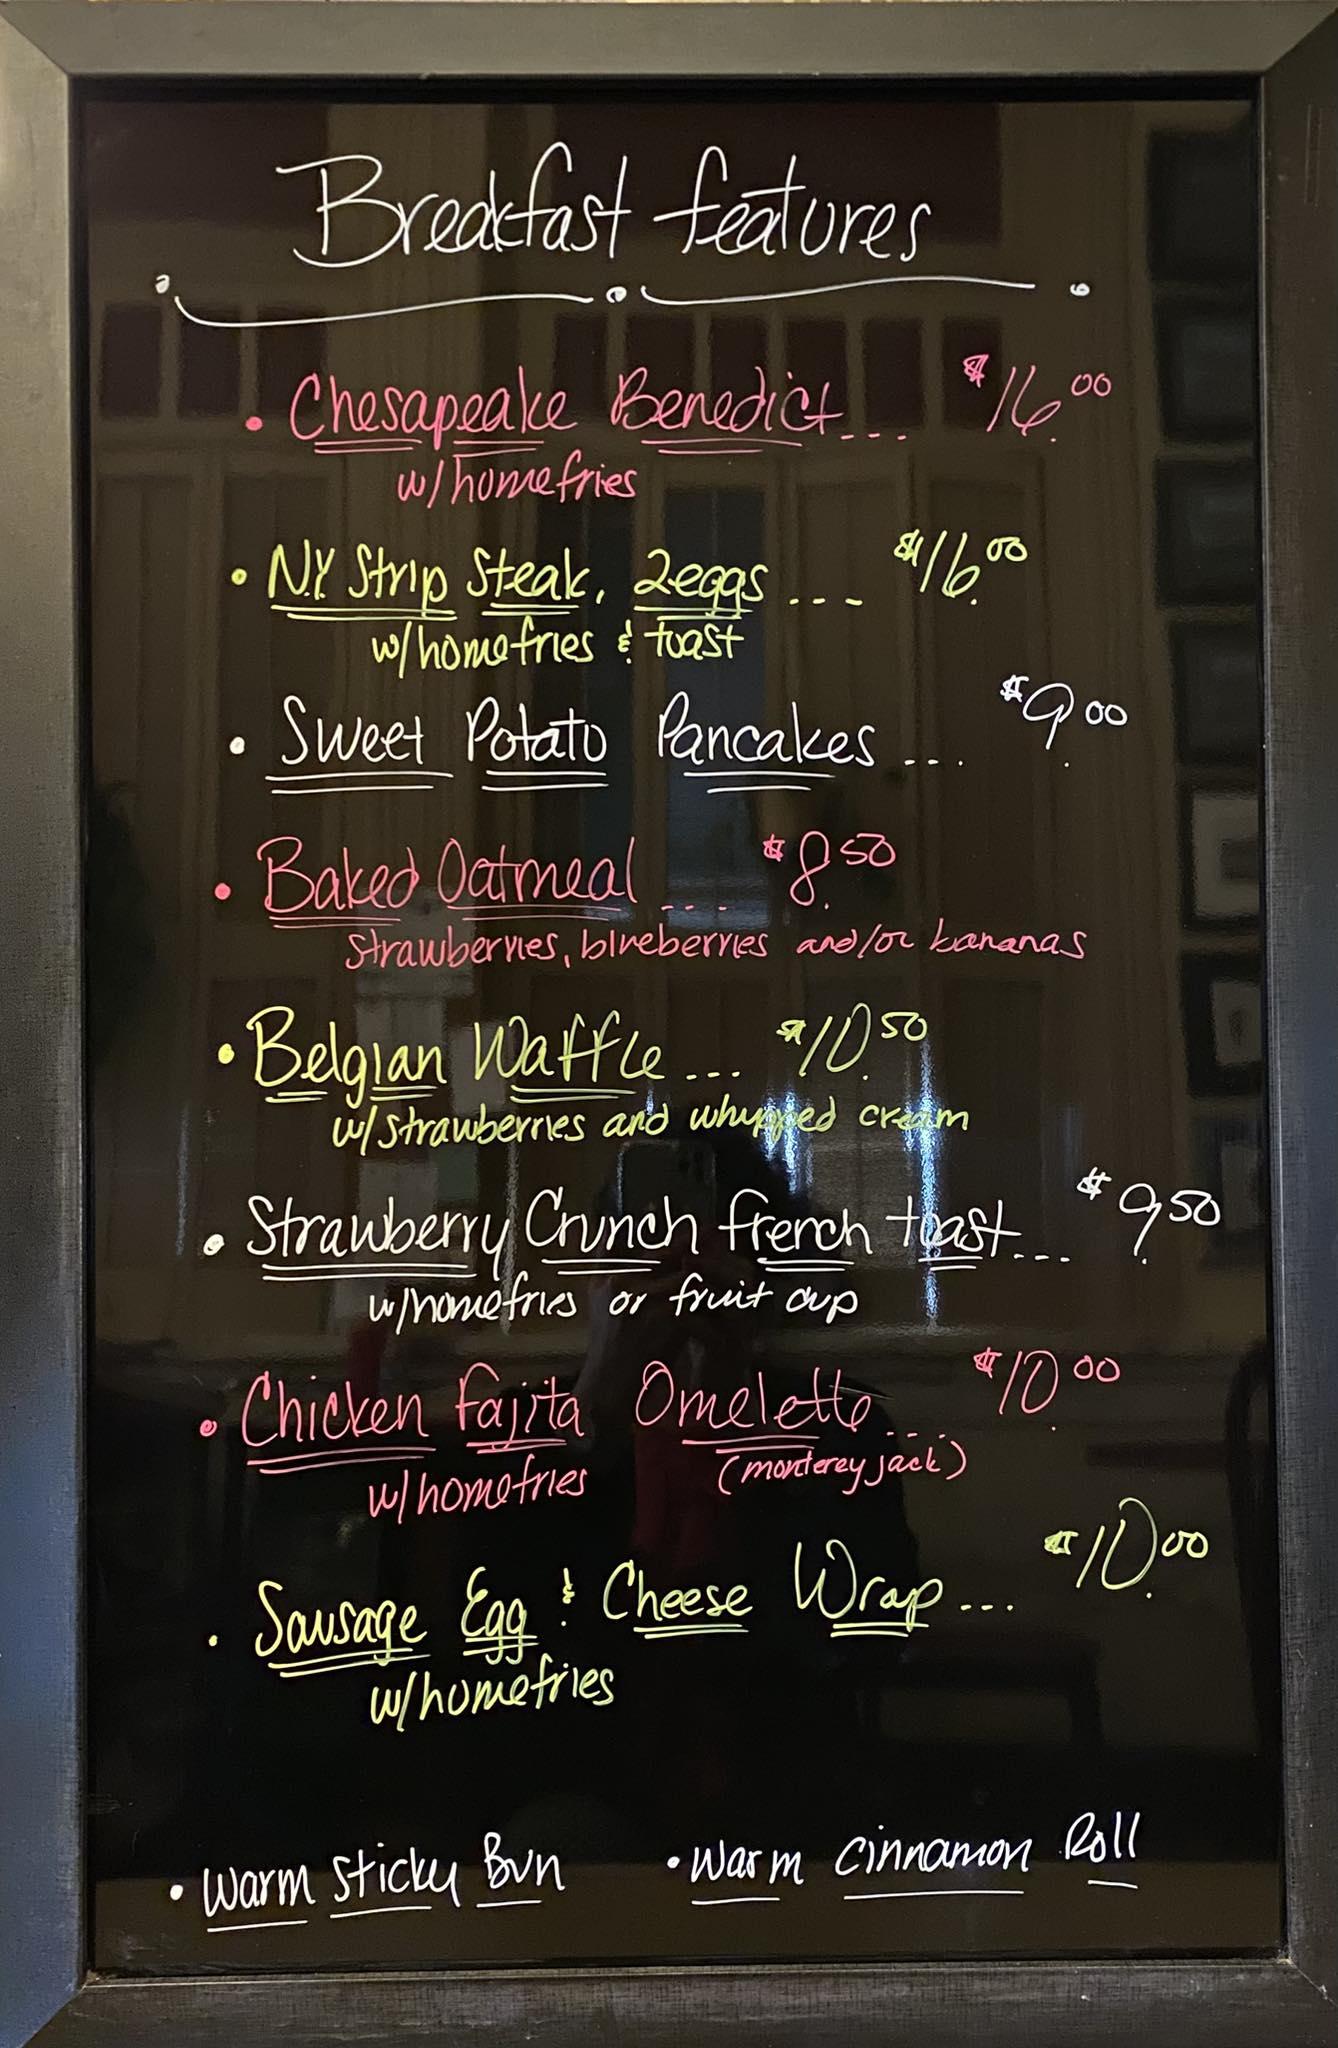 Breakfast features
• Chesapeake Benedict... $16.00
w/homefries
• N.Y. Strip Steak, 2eggs ... $16.00
w/homefries & toast
• Sweet Potato Pancakes ... $9.00
• Baked Oatmeal ... $8.50
strawberries, blueberries and/or bananas
• Belgian Waffle ... $10.50
w/strawberries and whipped cream
• Strawberry Crunch french toast... $9.50
w/homefries or fruit cup
• Chicken Fajita Omelette .... $10.00
w/homefries (monterey jack)
• Sausage Egg & Cheese Wrap ... $10.00
w/homefries
• Warm Sticky Bun • Warm Cinnamon Roll